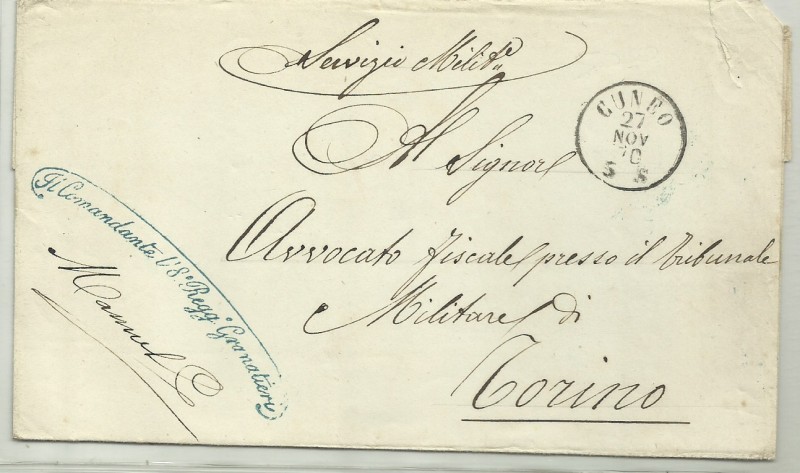 Servizio Milit.e
CUNEO
27
NOV
70
5 S
Al Signor
Avvocato fiscale presso il Tribunale
Militare di
Torino
Il Comandante l'8° Regg. Granatieri